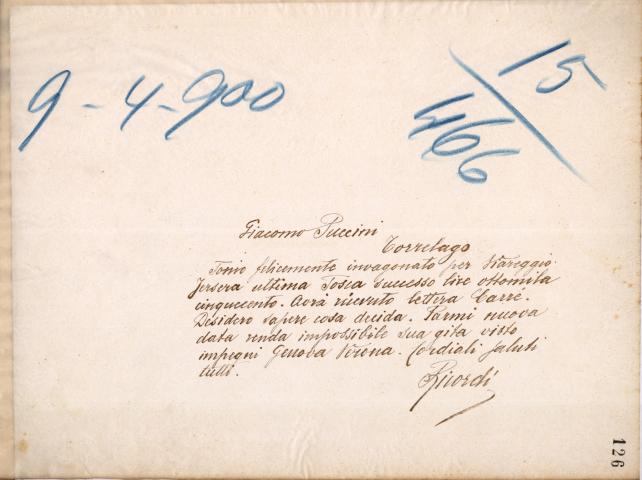 9-4-900
15
466
Giacomo Puccini
Torrelago
Tonio felicemente invagonato per Viareggio
Jersera ultima Tosca successo lire ottomila
cinquecento. Avrà ricevuto lettera Carré.
Desidero sapere cosa decida. Parmi nuova
data renda impossibile sua gita visto
impegni Genova Verona. Cordiali saluti
tutti.
Ricordi
126